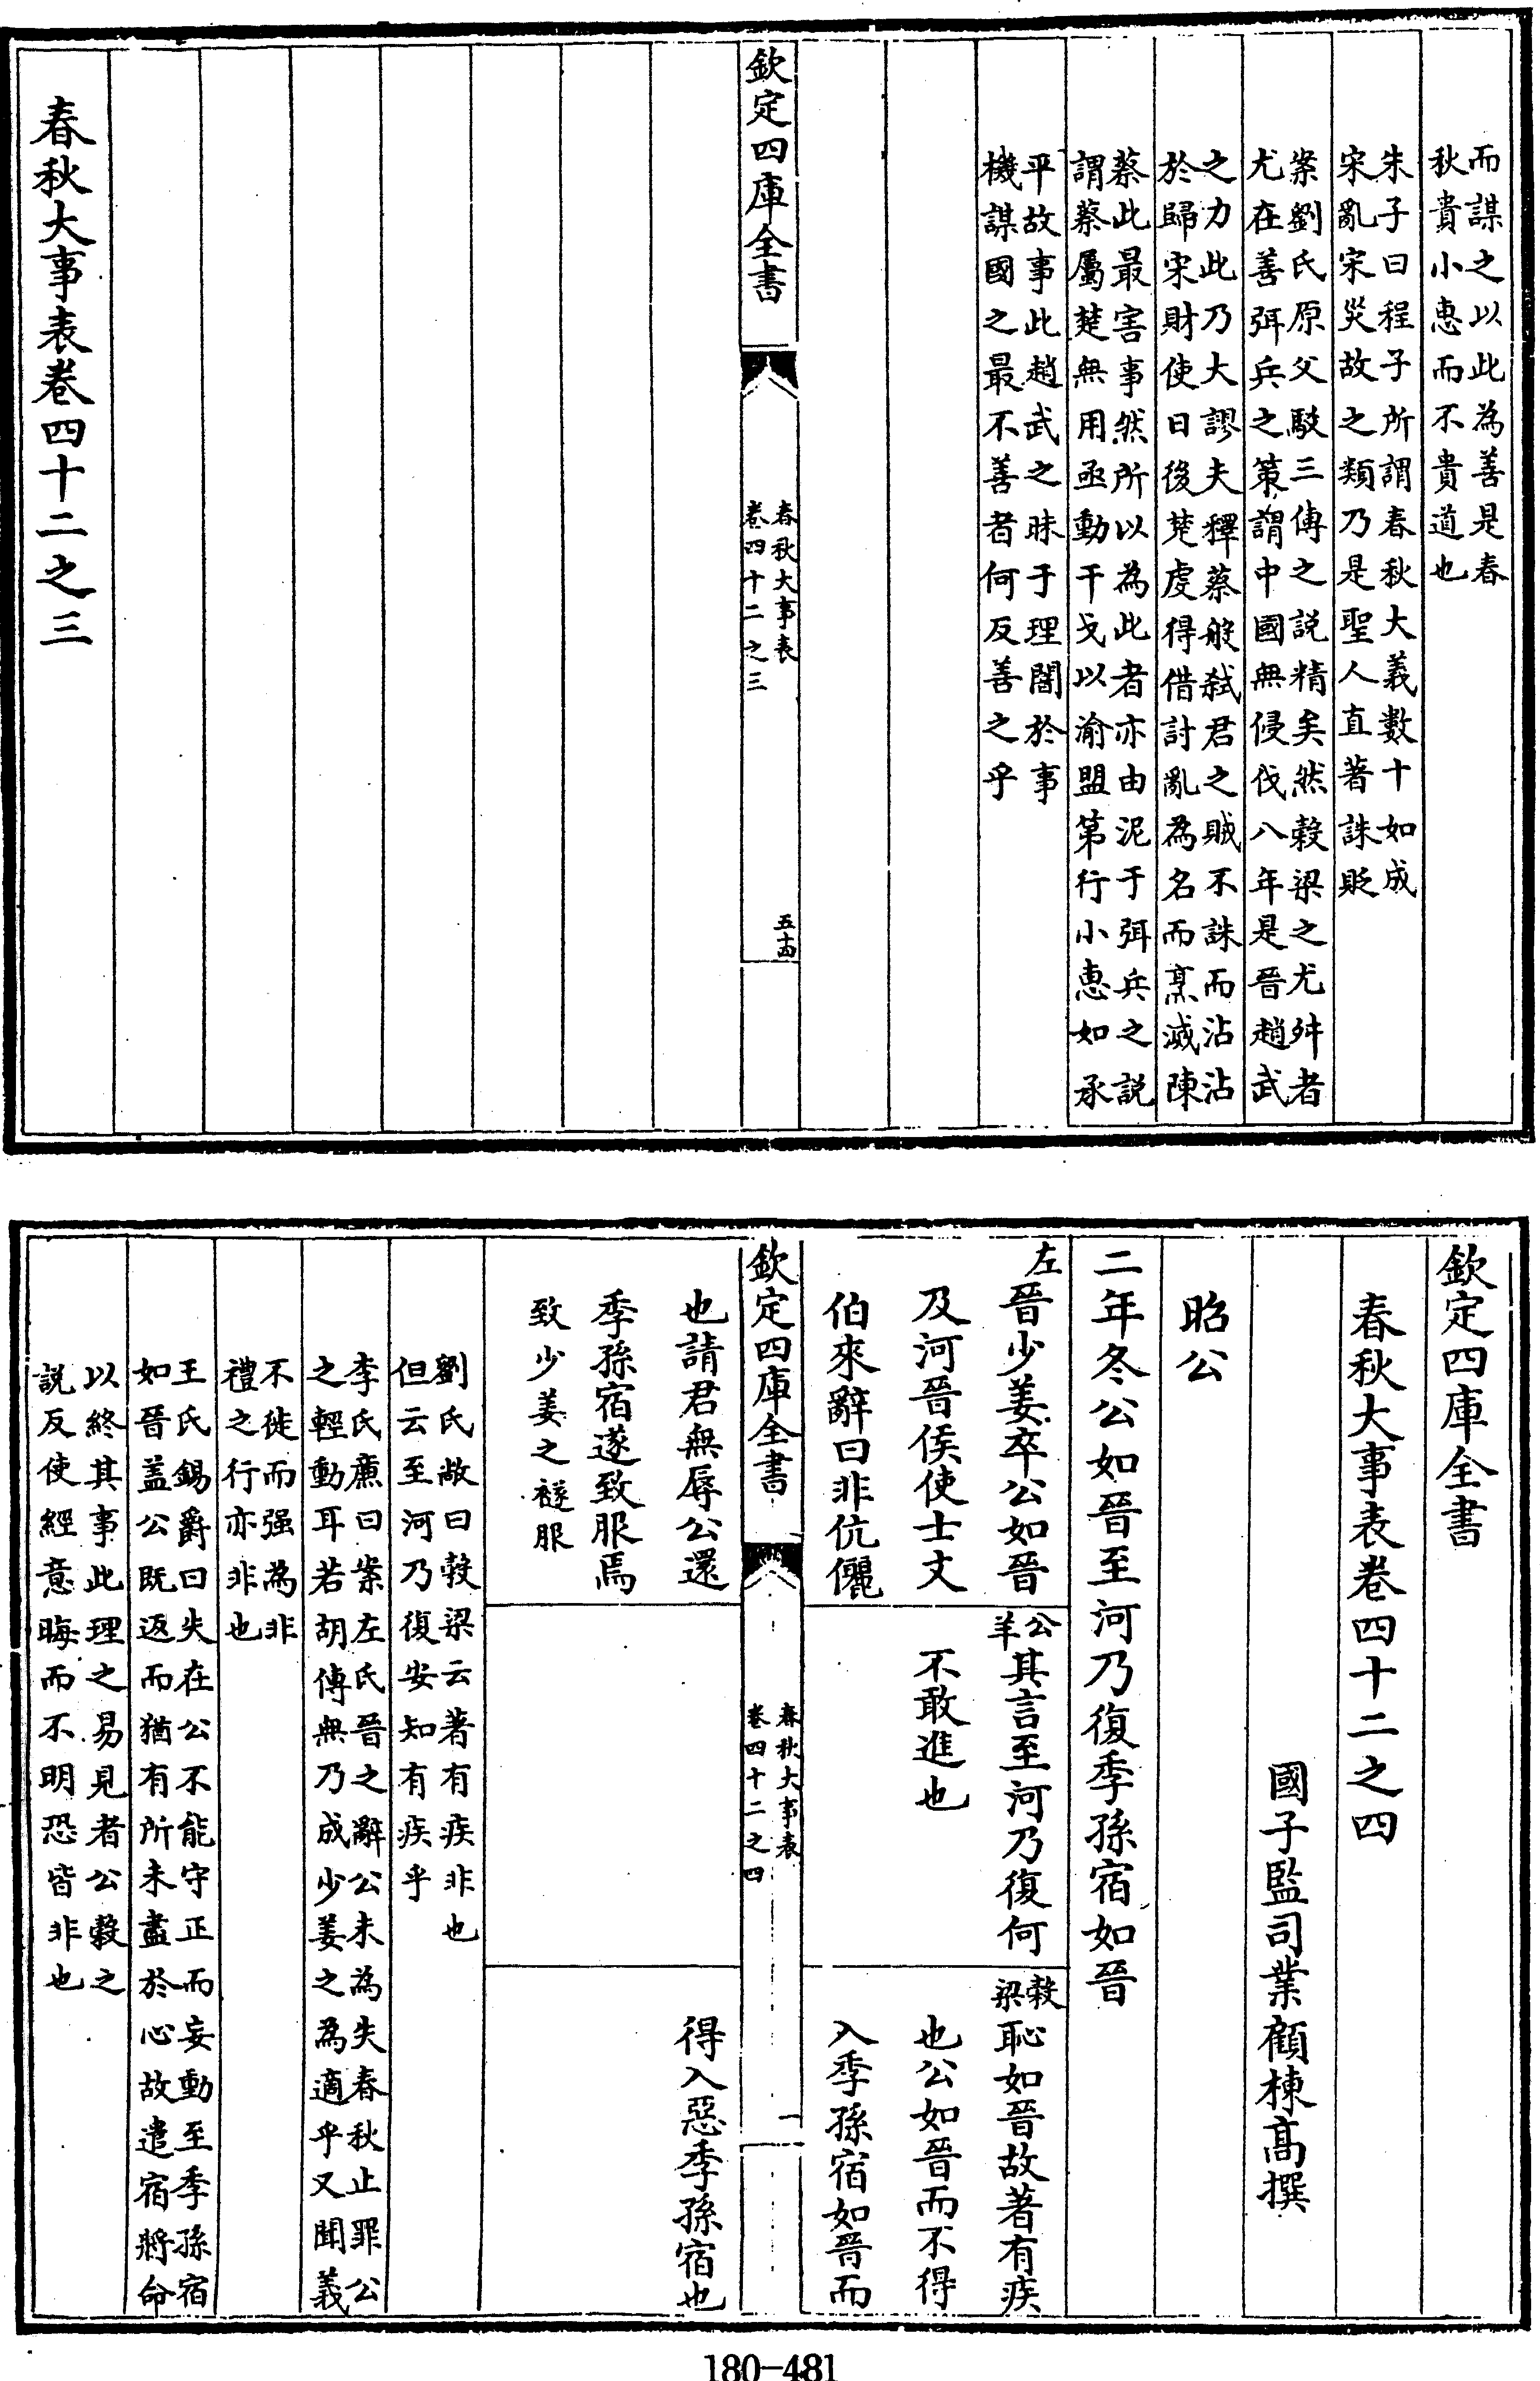 而謀之以此為善是春
秋貴小惠而不貴道也
朱子曰程子所謂春秋大義數十如成
宋亂宋災故之類乃是聖人直著誅貶
案劉氏原父駮三傳之説精矣然榖梁之尤舛者
尤在善弭兵之策謂中國無侵伐八年是晉趙武
之力此乃大謬夫釋蔡般弑君之賊不誅而沾沾
於歸宋財使日後楚虔得借討亂為名而烹滅陳
蔡此最害事然所以為此者亦由泥于弭兵之説
謂蔡屬楚無用亟動干戈以渝盟第行小惠如承
平故事此趙武之昧于理闇於事
機謀國之最不善者何反善之乎
欽定四庫全書
春秋大事表
卷四十二之三
五十四
春秋大事表卷四十二之三
欽定四庫全書
春秋大事表卷四十二之四
國子監司業顧棟高撰
昭公
二年冬公如晉至河乃復季孫宿如晉
左
晉少姜卒公如晉
及河晉侯使士文
伯來辭曰非伉儷
也請君無辱公還
季孫宿遂致服焉
致少姜之襚服
公
羊
其言至河乃復何
不敢進也
榖
梁
恥如晉故著有疾
也公如晉而不得
入季孫宿如晉而
得入惡季孫宿也
欽定四庫全書
春秋大事表
卷四十二之四
一
劉氏敞曰榖梁云著有疾非也
但云至河乃復安知有疾乎
李氏廉曰案左氏晉之辭公未為失春秋止罪公
之輕動耳若胡傳無乃成少姜之為適乎又聞義
不徙而强為非
禮之行亦非也
王氏錫爵曰失在公不能守正而妄動至季孫宿
如晉盖公既返而猶有所未盡於心故遣宿將命
以終其事此理之易見者公榖之
説反使經意晦而不明恐皆非也
180-481